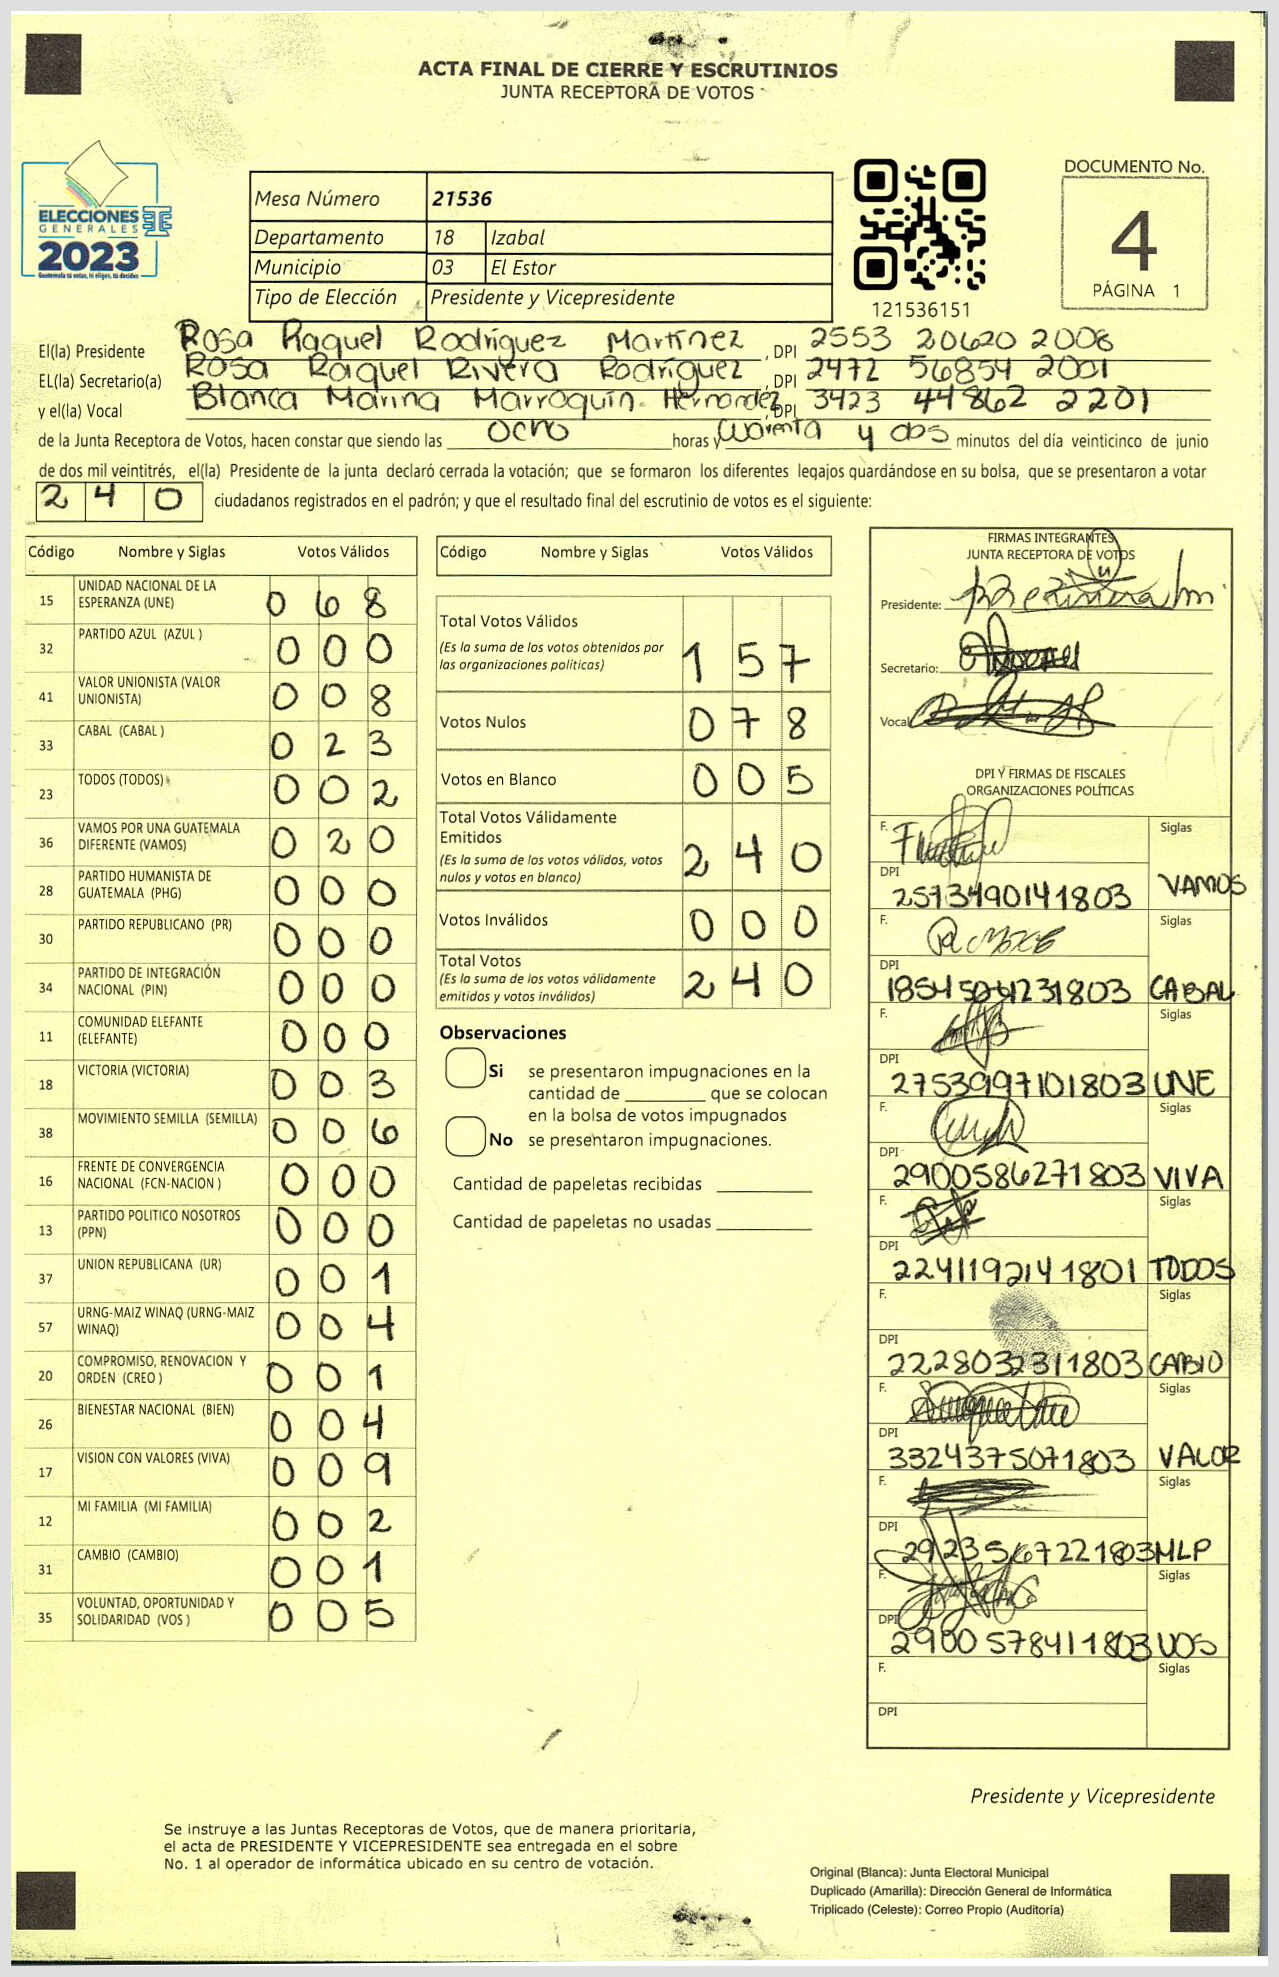 ACTA FINAL DE CIERRE Y ESCRUTINIOS
JUNTA RECEPTORA DE VOTOS
ELECCIONES
GENERALES
2023
Guatemala tú votas, tú eliges, tú decides
Mesa Número 21536
Departamento 18 Izabal
Municipio 03 El Estor
Tipo de Elección Presidente y Vicepresidente
121536151
DOCUMENTO No.
4
PÁGINA 1
El(la) Presidente Rosa Raquel Rodríguez Martínez , DPI 2553 20620 2008
EL(la) Secretario(a) Rosa Raquel Rivera Rodríguez , DPI 2472 56854 2001
y el(la) Vocal Blanca Marina Marroquín Hernandez , DPI 3423 44862 2201
de la Junta Receptora de Votos, hacen constar que siendo las ocho horas y cuarenta y dos minutos del día veinticinco de junio
de dos mil veintitrés, el(la) Presidente de la junta declaró cerrada la votación; que se formaron los diferentes legajos guardándose en su bolsa, que se presentaron a votar
240 ciudadanos registrados en el padrón; y que el resultado final del escrutinio de votos es el siguiente:
Código Nombre y Siglas Votos Válidos
15 UNIDAD NACIONAL DE LA ESPERANZA (UNE) 068
32 PARTIDO AZUL (AZUL ) 000
41 VALOR UNIONISTA (VALOR UNIONISTA) 008
33 CABAL (CABAL ) 023
23 TODOS (TODOS) 002
36 VAMOS POR UNA GUATEMALA DIFERENTE (VAMOS) 020
28 PARTIDO HUMANISTA DE GUATEMALA (PHG) 000
30 PARTIDO REPUBLICANO (PR) 000
34 PARTIDO DE INTEGRACIÓN NACIONAL (PIN) 000
11 COMUNIDAD ELEFANTE (ELEFANTE) 000
18 VICTORIA (VICTORIA) 003
38 MOVIMIENTO SEMILLA (SEMILLA) 006
16 FRENTE DE CONVERGENCIA NACIONAL (FCN-NACION ) 000
13 PARTIDO POLITICO NOSOTROS (PPN) 000
37 UNION REPUBLICANA (UR) 001
57 URNG-MAIZ WINAQ (URNG-MAIZ WINAQ) 004
20 COMPROMISO, RENOVACION Y ORDEN (CREO ) 001
26 BIENESTAR NACIONAL (BIEN) 004
17 VISION CON VALORES (VIVA) 009
12 MI FAMILIA (MI FAMILIA) 002
31 CAMBIO (CAMBIO) 001
35 VOLUNTAD, OPORTUNIDAD Y SOLIDARIDAD (VOS ) 005
Código Nombre y Siglas Votos Válidos
Total Votos Válidos
(Es la suma de los votos obtenidos por
las organizaciones políticas) 157
Votos Nulos 078
Votos en Blanco 005
Total Votos Válidamente
Emitidos
(Es la suma de los votos válidos, votos
nulos y votos en blanco) 240
Votos Inválidos 000
Total Votos
(Es la suma de los votos válidamente
emitidos y votos inválidos) 240
Observaciones
Si se presentaron impugnaciones en la
cantidad de ________ que se colocan
en la bolsa de votos impugnados
No se presentaron impugnaciones.
Cantidad de papeletas recibidas
Cantidad de papeletas no usadas
FIRMAS INTEGRANTES
JUNTA RECEPTORA DE VOTOS
Presidente:
Secretario:
Vocal
DPI Y FIRMAS DE FISCALES
ORGANIZACIONES POLÍTICAS
F. Siglas
DPI 2573490141803 VAMOS
F. Siglas
DPI CABAL
F. Siglas
DPI 2753997101803 UNE
F. Siglas
DPI 2900586271803 VIVA
F. Siglas
DPI 2241192141801 TODOS
F. Siglas
DPI 2228032311803 CABIO
F. Siglas
DPI 3324375071803 VALOR
F. Siglas
DPI 2923567221803 MLP
F. Siglas
DPI 2900578411803 VOS
F. Siglas
DPI
Presidente y Vicepresidente
Se instruye a las Juntas Receptoras de Votos, que de manera prioritaria,
el acta de PRESIDENTE Y VICEPRESIDENTE sea entregada en el sobre
No. 1 al operador de informática ubicado en su centro de votación.
Original (Blanca): Junta Electoral Municipal
Duplicado (Amarilla): Dirección General de Informática
Triplicado (Celeste): Correo Propio (Auditoría)